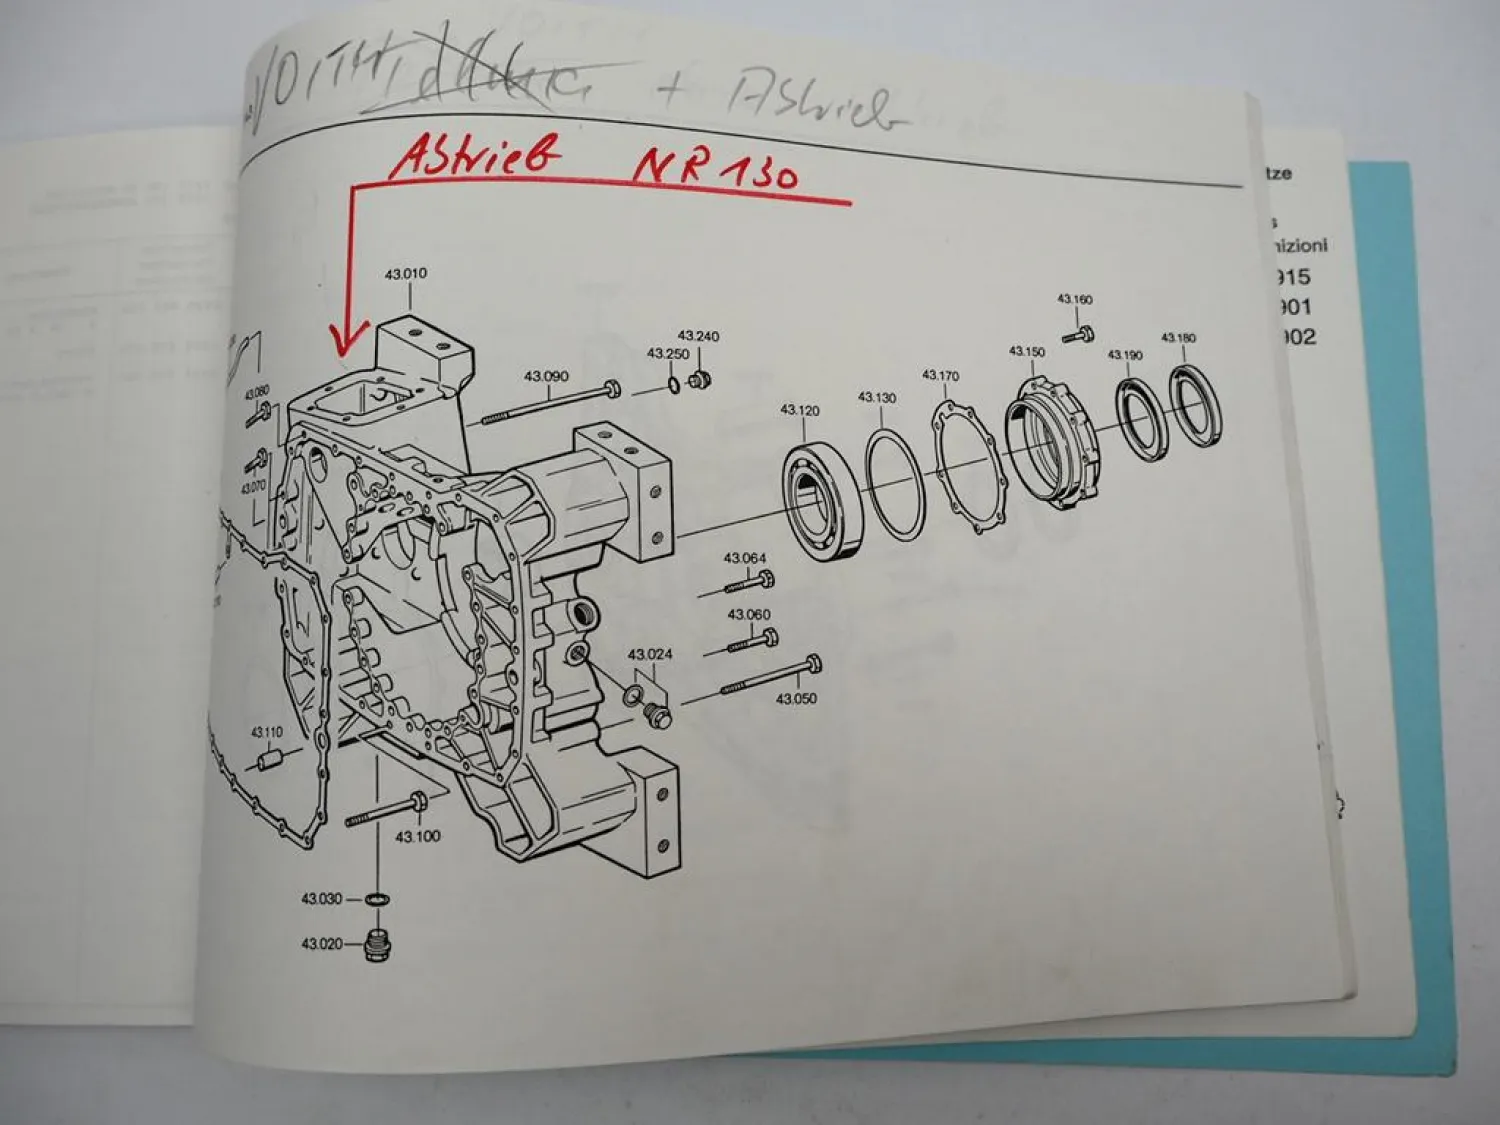 VOITH + AStrieb
AStrieb NR 130
43.010
43.240
43.250
43.090
43.080
43.070
43.120
43.130
43.170
43.150
43.160
43.190
43.180
43.064
43.060
43.024
43.050
43.110
43.100
43.030
43.020
tze
s
nizioni
915
901
902